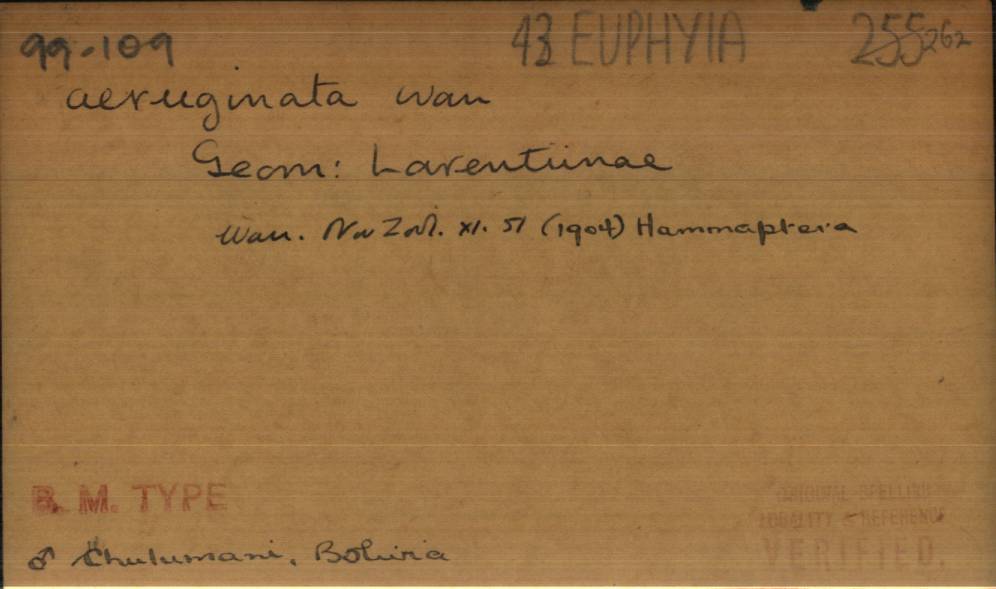 99-109 43 EUPHYIA 255 262
aeruginata Warr
Geom: Larentiinae
Warr. Nov Zool. XI. 51 (1904) Hammaptera
B. M. TYPE
ORIGINAL SPELLING
LOCALITY & REFERENCE
VERIFIED.
♂ Chulumani, Bolivia